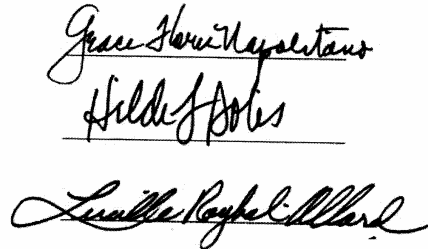 Grace Flores Napolitano
Hilda L Solis
Lucille Roybal-Allard